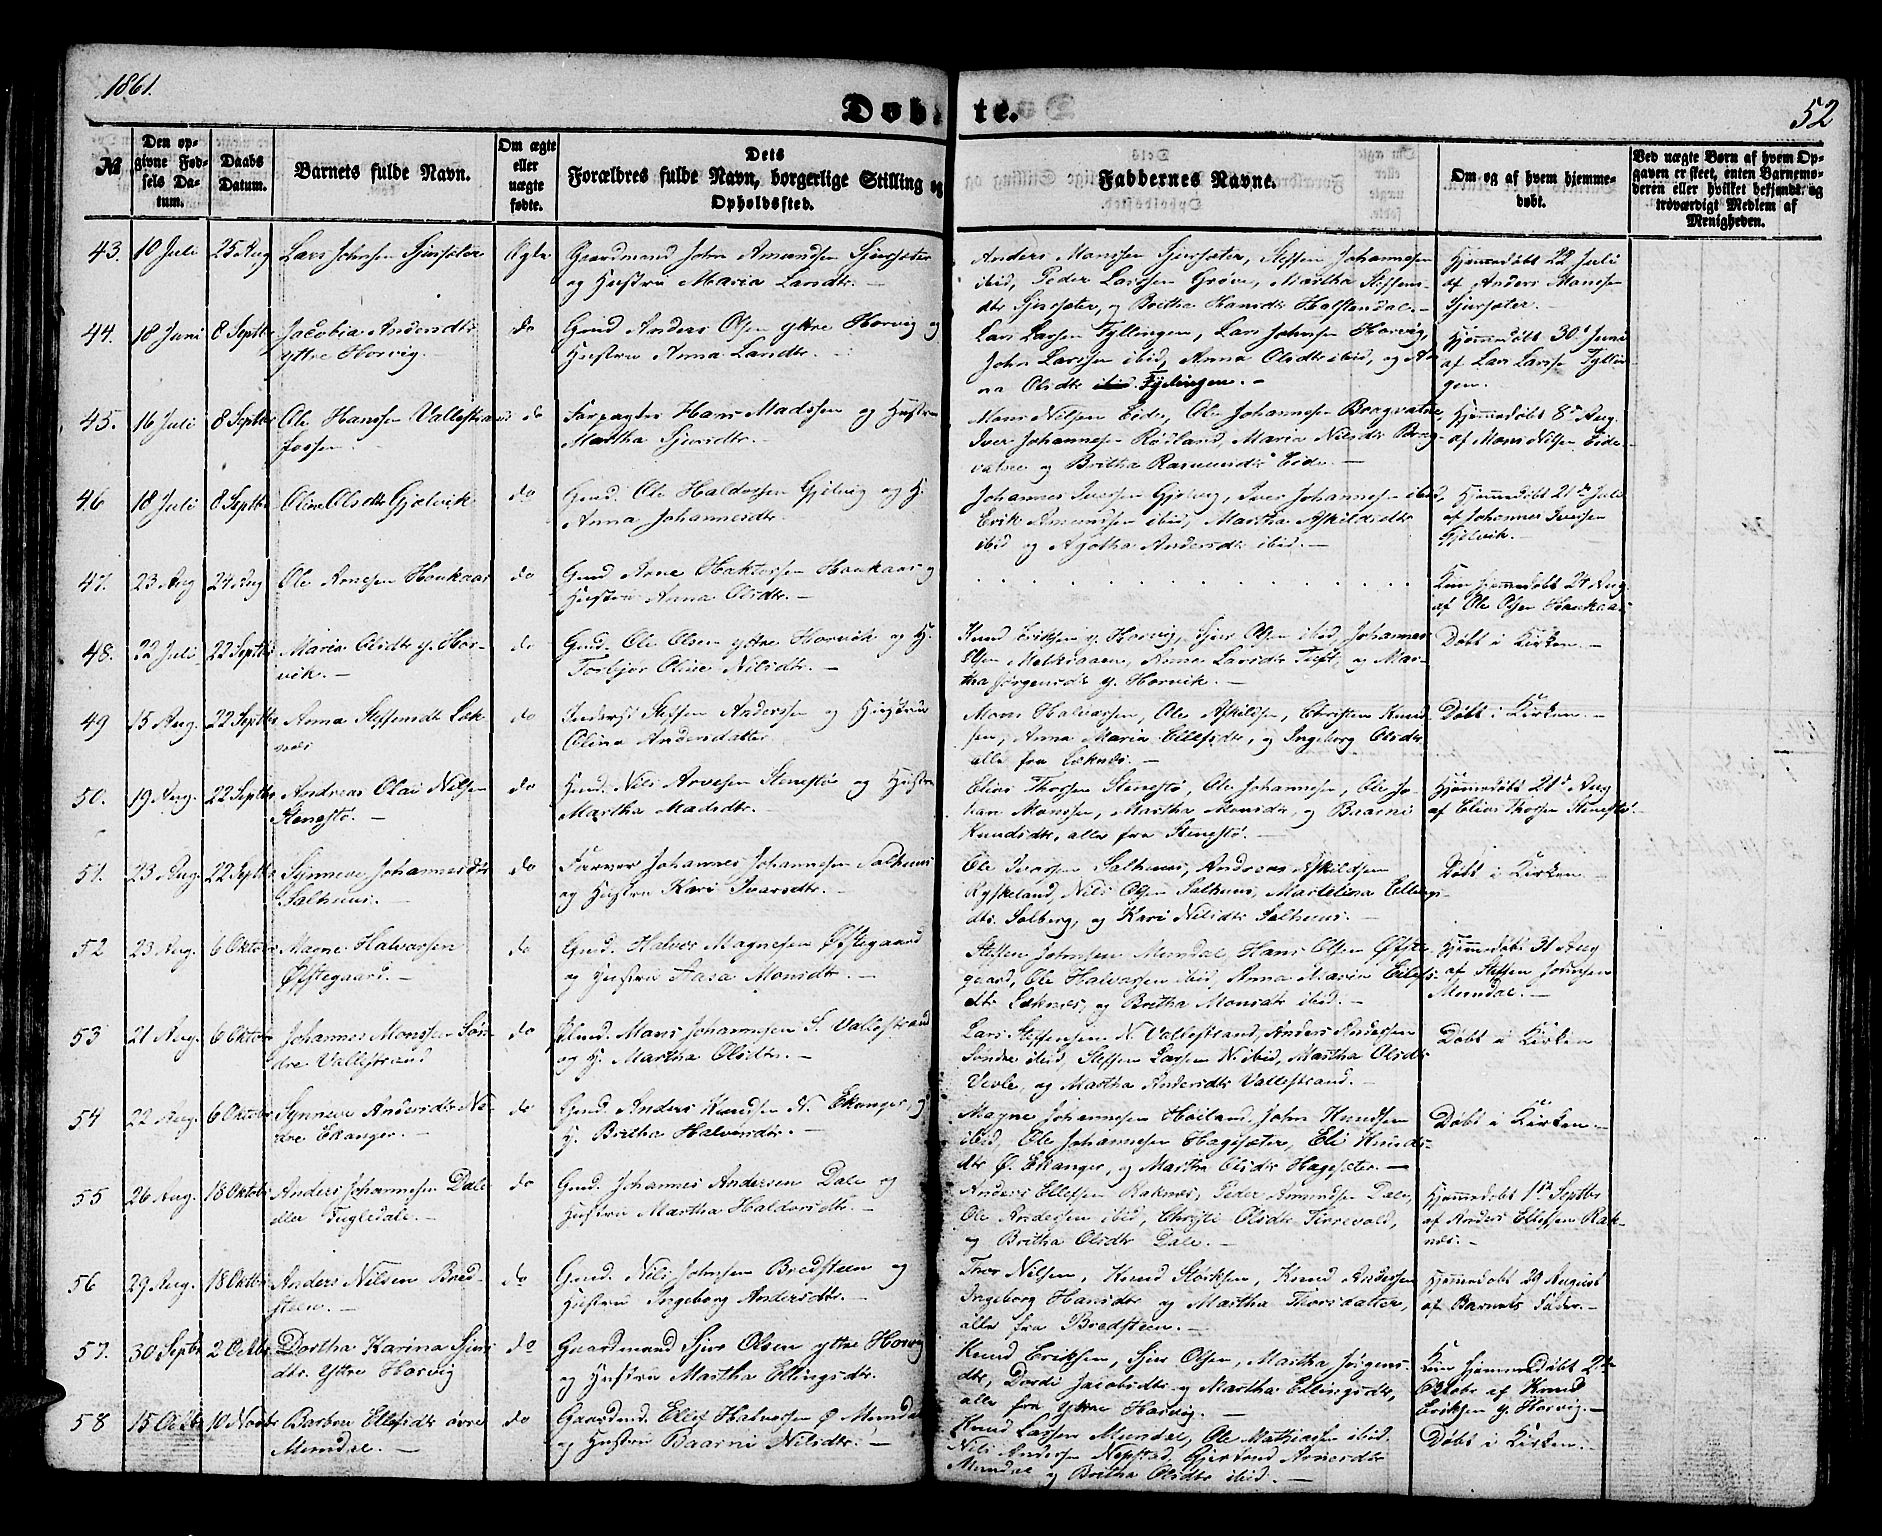 1861.
Døbte.
52
№
Den opgivne Fødsels Datum.
Daabs Datum.
Barnets fulde Navn.
Om ægte eller uægte fødte.
Dets Forældres fulde Navn, borgerlige Stilling og Opholdssted.
Faddernes Navne.
Om og af hvem hjemmedøbt.
Ved uægte Børn af hvem Opgaven er skeet, enten Barnemoderen eller hvilket bekjendt og troværdigt Medlem af Menigheden.
43. 10 Juli 25 Aug Lars Johnsen Sjursæter Ægte Gaardmand John Amundsen Sjursæter
og Hustru Maria Larsdtr. —
Anders Monssen Sjursæter, Steffen Johannesen
ibid, Peder Larssen Grøen, Martha Steffens-
dtr Sjursæter, og Britha Hansdtr Halstendal. —
Hjemmedøbt 22 Juli
af Anders Monssen
Sjursæter.
44. 18 Juni 8 Septbr Jacobia Andersdtr
yttre Horvig.
do Gmd Anders Olsen yttre Horvig og
Hustru Anna Larsdtr. —
Lars Larssen Tyllingen, Lars Johnsen Horvig,
John Larssen ibid, Anna Olsdtr ibid, og An-
na Olsdtr Tyslingen. —
Hjemmedøbt 30te Juni
af Lars Larsse Tyllin
gen.
45. 16 Juli 8 Septbr Ole Hanssen Vallestrand
fossen.
do Forpagter Hans Madssen og Hustru
Martha Sjursdtr. —
Mons Nilsen Eide, Ole Johannesen Borgvatne,
Iver Johannesen Rødland, Maria Nilsdtr Borg-
vatne og Britha Rasmusdtr Eide. —
Hjemmedøbt 8de Aug.
af Mons Nilsen Eide.
46 18 Juli 8 Septbr Oline Olsdtr Gjelvik
do Gmd. Ole Haldorssen Gjelvig og H.
Anna Johannesdtr. —
Johannes Iverssen Gjelvig, Iver Johannessen ibid,
Erik Amundssen ibid, Martha Askildsdtr
ibid og Agatha Andersdtr ibid. —
Hjemmedøbt 21de Juli
af Johannes Iverssen
Gjelvik.
47. 23 Aug 24 Aug Ole Arnesen Haukaas
do Gmd Arne Haktorssen Haukaas og
Hustru Anna Olsdtr. —
Kun hjemmedøbt 24 Aug
af Ole Olsen Haukaas
48. 22 Juli 22 Septbr Maria Olsdtr y. Hor-
vik. —
do Gmd. Ole Olsen yttre Horvik og H.
Torbjør Oline Nilsdtr. —
Knud Eriksen y. Horvig, Sjur Olsen ibid, Johannes
Olsen Melkeraaen, Anna Larsdtr Tuft, og Mar-
tha Jørgensdtr y. Horvik. —
Døbt i Kirken. —
49 15 Aug. 22 Septbr Anna Steffensdtr Læk-
næs
do Inderst Steffen Anderssen og Hustru
Olina Andersdatter
Mons Halvorssen, Ole Askildsen, Christen Knud
sen, Anna Maria Ellefsdtr, og Ingeborg Olsdtr
alle fra Læknæs. —
Døbt i Kirken. —
50. 19 Aug. 22 Septbr Andreas Olai Nilsen
Stenestø. —
do Hmd. Nils Arnesen Stenestø og Hustru
Martha Madsdtr. —
Elias Thorsen Stenestø, Ole Johannesen, Ole Jo-
han Monssen, Martha Monsdtr, og Baarni
Knudsdtr, alle fra Stenestø. —
Hjemmedøbt 21de Aug
af Elias Thorsen Stenestø.
51. 23 Aug. 22 Septbr Synneve Johannesdtr
Salhuus. —
do Farver Johannes Johannesen Salhuus
og Hustru Kari Ivarsdtr. —
Ole Iverssen Salhuus, Andreas Askildsen
Ryskeland, Nils Olsen Salhuus, Martelina Ellings-
dtr. Solberg, og Kari Nilsdtr Salhuus. —
Døbt i Kirken. —
52 23 Aug. 6 Oktobr Magne Halvorssen
Øfstegaard. —
do Gmd. Halvor Magnesen Øfstegaard
og Hustru Sara Monsdtr. —
Steffen Johnsen Mundal, Hans Olsen Øfste
gaard, Ole Halvorssen ibid, Anna Maria Eilefs-
dtr Læknæs, og Britha Monsdtr ibid. —
Hjemmedøbt 31 Aug
af Steffen Johnsen
Mundal. —
53 21 Aug. 6 Oktobr Johannes Monssen Søn-
dre Vallestrand
do Gmd. Mons Johannesen S. Vallestrand
og H. Martha Olsdtr. —
Lars Steffensen N. Vallestrand, Anders Anderssen
Søndre ibid, Steffen Larssen N. ibid, Martha Olsdtr
Vevle, og Martha Andersdtr Vallestrand. —
Døbt i Kirken
54 22 Aug. 6 Oktobr Synneve Andersdtr Ne-
dre Ekanger. —
do Gmd. Anders Knudsen N. Ekanger, og
H. Britha Halvorsdtr. —
Magne Johannesen Høiland, John Knudsen
ibid, Ole Johannesen Hagesæter, Eli Knuds-
dtr Ø. Ekanger, og Martha Olsdtr Hagesæter. —
Døbt i Kirken —
55 26 Aug. 18 Oktobr Anders Johannesen Dale
eller Fugledal. —
do Gmd. Johannes Andersen Dale og
Hustru Martha Haldorsdtr. —
Anders Ellefsen Raknes, Peder Amundsen Dale,
Ole Anderssen ibid, Christi Olsdtr Tirrevold,
og Britha Olsdtr Dale. —
Hjemmedøbt 1ste Septbr
af Anders Ellefsen Rak-
nes. —
56 29 Aug. 18 Oktobr Anders Nilsen Bred-
steen. —
do Gmd. Nils Johnsen Bredsteen og
Hustru Ingeborg Andersdtr. —
Thor Nilsen, Knud Størksen, Knud Anderssen
Ingeborg Hansdtr og Martha Thorsdatter,
alle fra Bredsteen. —
Hjemmedøbt 29 August
af Barnets Fader. —
57. 30 Septbr 2 Octbr. Dortha Karina Sjurs
dtr. Yttre Horvig
do Gaardmand Sjur Olsen yttre Horvig
og Hustru Martha Ellingsdtr.
Knud Eriksen, Sjur Olsen, Martha Jørgens-
dtr, Dordi Jacobsdtr og Martha Ellingsdtr,
alle fra Yttre Horvig. —
Kun hjemmedøbt 2de
Octobr af Knud
Eriksen y. Horvig. —
58 15 Octbr 10 Novbr Barbra Ellefsdtr øvre
Mundal. —
do Gaardmd. Elef Halvorssen Ø Mundal
og Hustru Baarni Nilsdtr. —
Knud Larssen Mundal, Ole Mathiassen ibid.
Nils Anderssen Nepstad, Gjertrud Arnesdtr
Mundal og Britha Olsdtr ibid. —
Døbt i Kirken. —